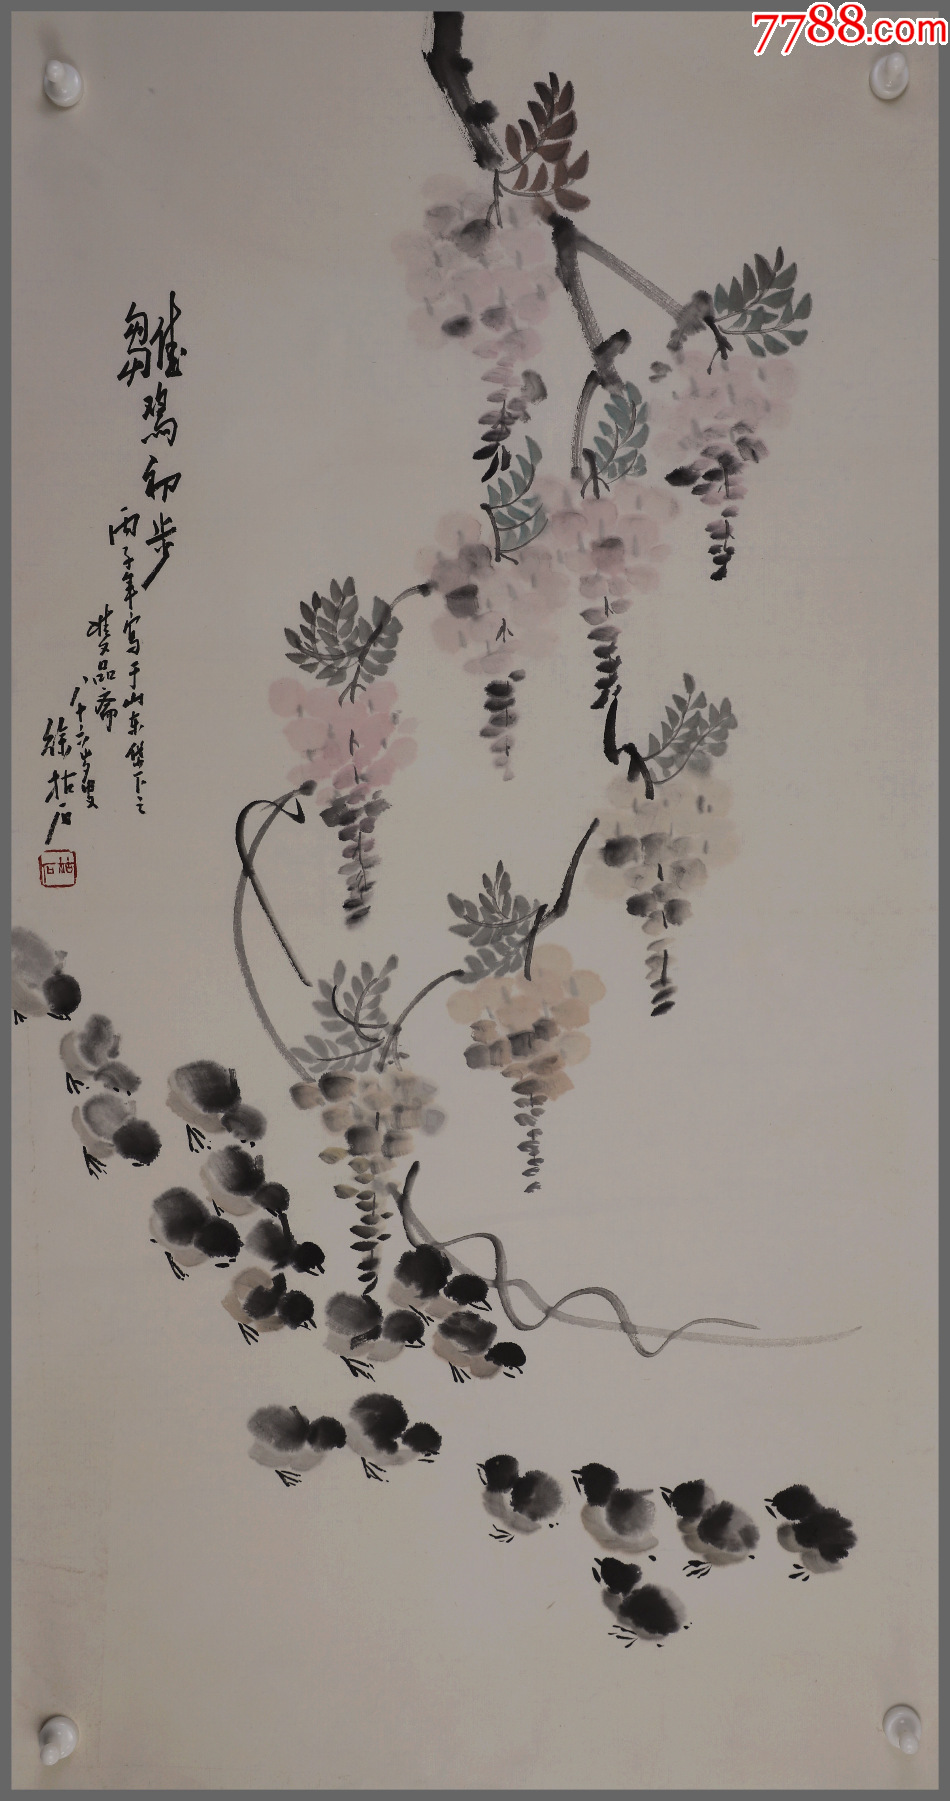 7788.com
雛鸡初步
丙子年寫于山东岱下之
品斋
八十六岁叟
徐枯石
枯石